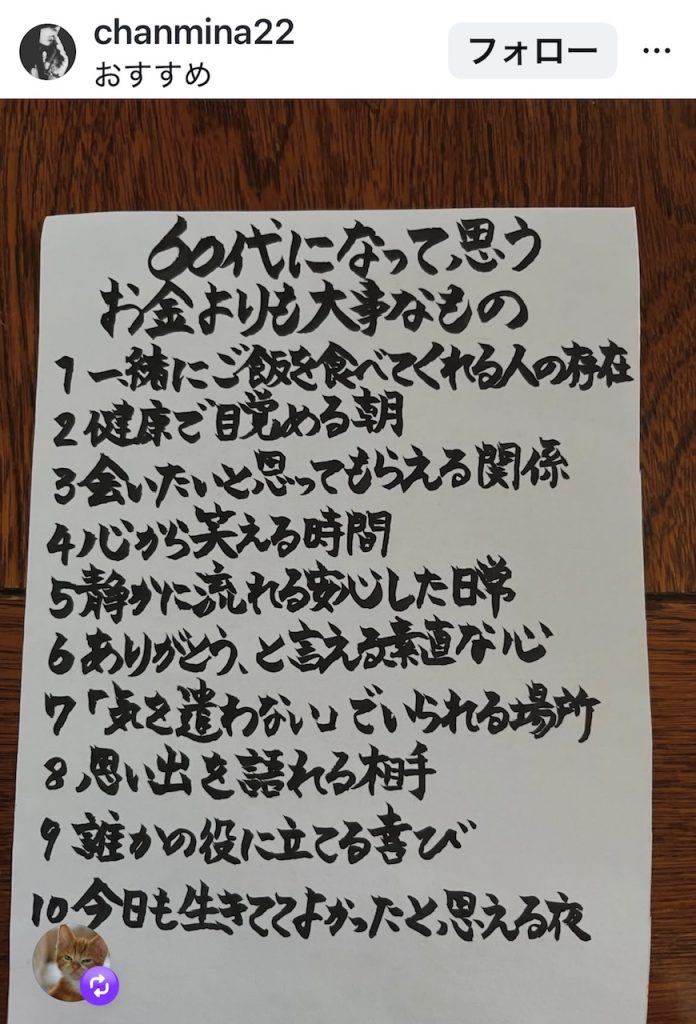 chanmina22
おすすめ
フォロー
60代になって、思う
お金よりも大事なもの
1 一緒にご飯を食べてくれる人の存在
2 健康で目覚める朝
3 会いたいと思ってもらえる関係
4 心から笑える時間
5 静かに流れる安心した日常
6 ありがとう、と言える素直な心
7 「気を遣わない」でいられる場所
8 思い出を語れる相手
9 誰かの役に立てる喜び
10 今日も生きててよかったと、思える夜